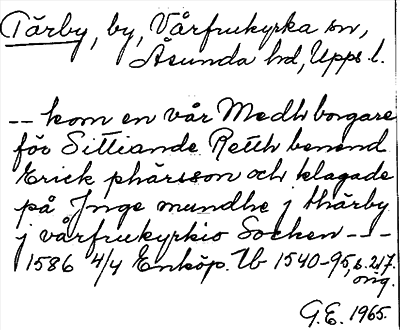 Tärby, by, Vårfrukyrka sn,
Åsunda hd, Upps. l.
-- kom en vår Medh borgare
för Sittiande Retth benend
Erick phärsson och klagade
på Inge mundhe j thärby
j vårfrukyrkio Socken ---
1586 4/4 Enköp. Tb 1540-95, s. 217.
orig.
G.E. 1965.